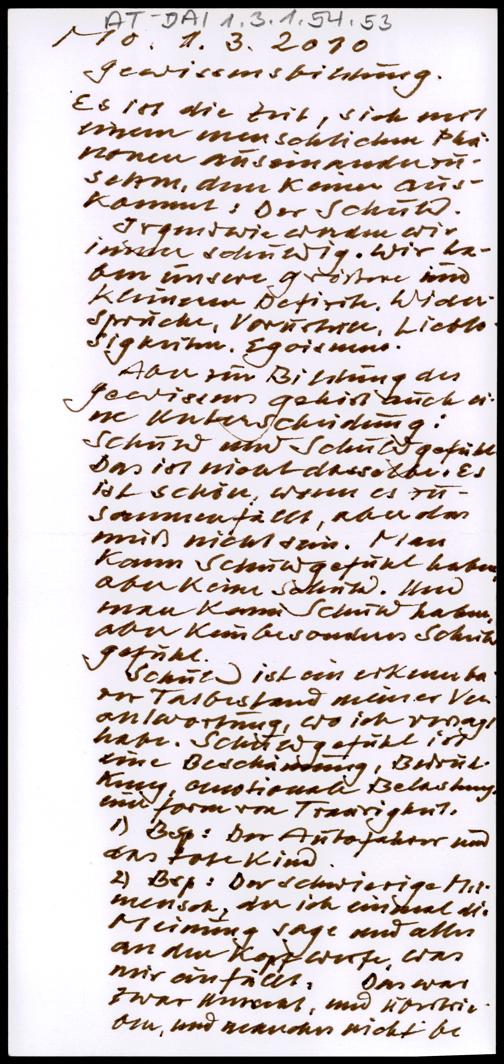 AT-DAI 1.3.1.54.53
Mo. 1.3.2010
Gewissensbildung.
Es ist die Zeit, sich mit
einem menschlichen Phä-
nomen auseinanderzu-
setzen, dem Keiner aus-
kommt: Der Schuld.
Irgendwie werden wir
immer schuldig. Wir ha-
ben unsere größeren und
kleineren Defizite, Wider-
sprüche, Vorurteile, Lieblo-
sigkeiten, Egoismen.
Aber zur Bildung des
Gewissens gehört auch ei-
ne Unterscheidung:
Schuld und Schuldgefühl
Das ist nicht dasselbe. Es
ist schön, wenn es zu-
sammenfällt, aber das
muß nicht sein. Man
kann Schuldgefühl haben,
aber keine Schuld. Und
man kann Schuld haben,
aber kein besonderes Schuld
gefühl.
Schuld ist ein erkennba-
rer Tatbestand meiner Ver-
antwortung, wo ich versagt
habe. Schuldgefühl ist
eine Beschämung, Bedrük-
kung, emotionale Belastung,
eine Form von Traurigkeit.
1) Bsp: Der Autofahrer und
das tote Kind.
2) Bsp: Der schwierige Mit-
mensch, dem ich einmal die
Meinung sage und alles
an den Kopf werfe, was
mir einfällt. Das war
zwar und übertrie-
ben, und manches nicht be